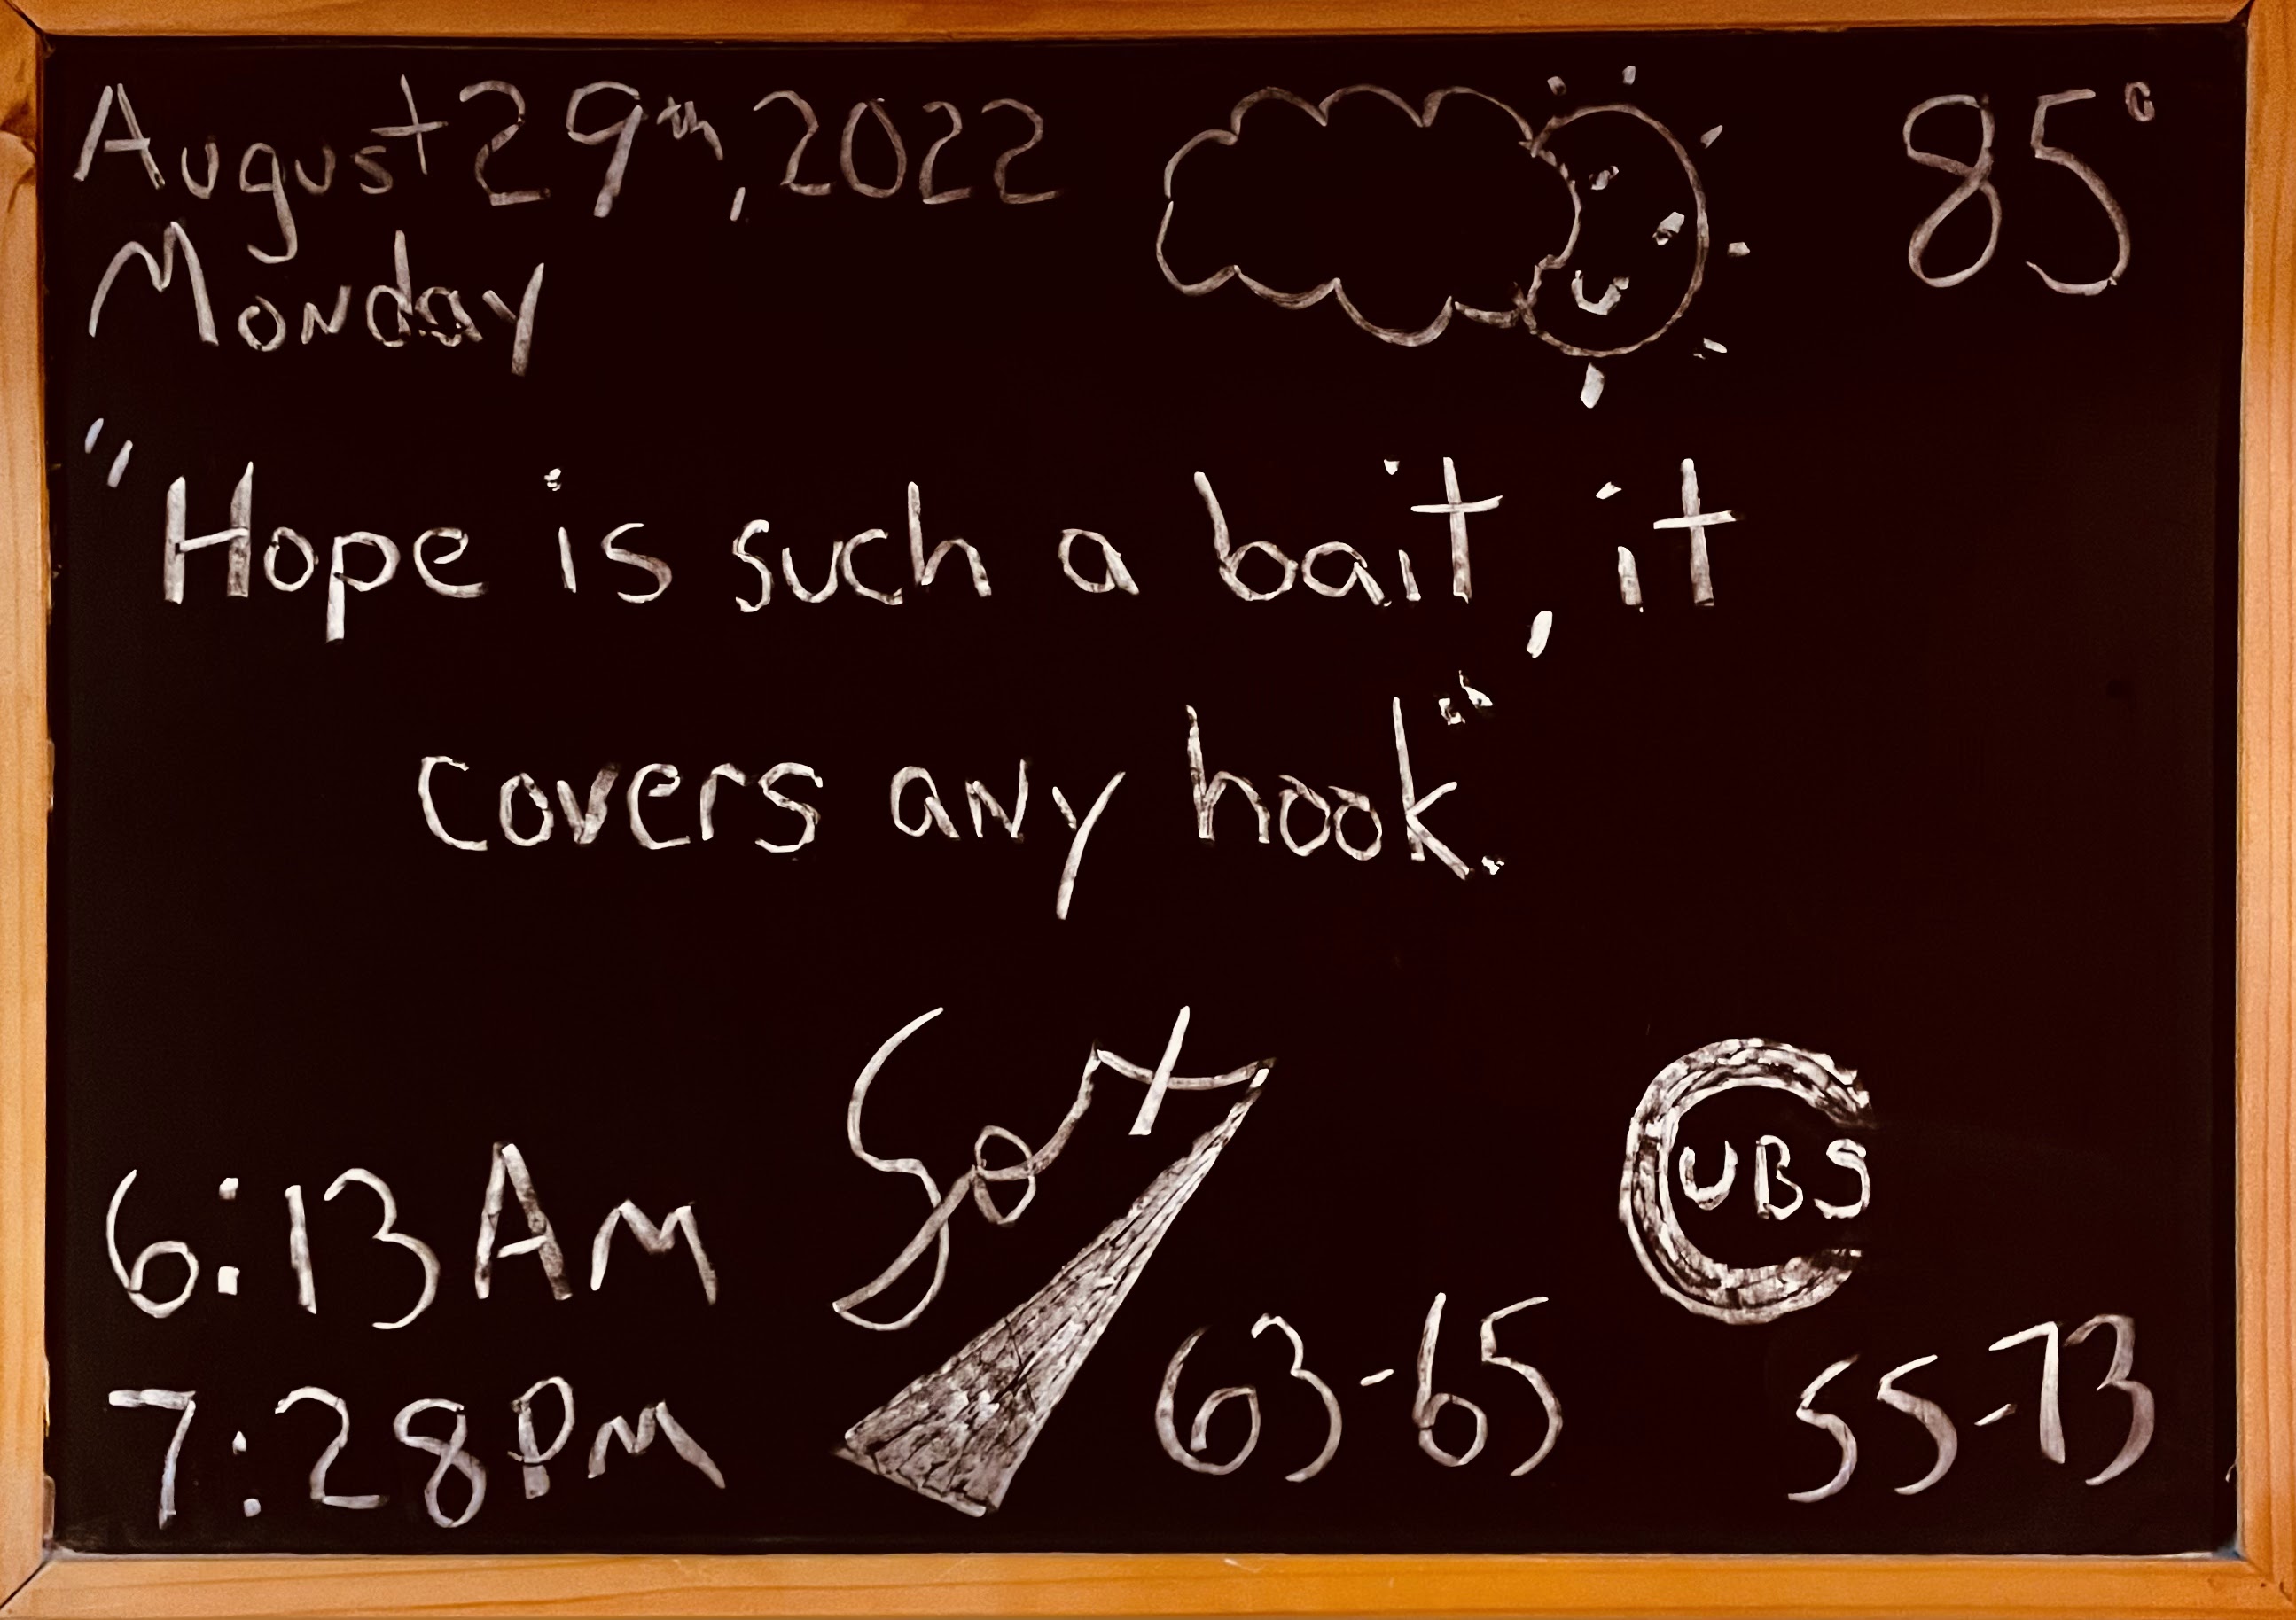 August 29th, 2022
85°
Monday
"Hope is such a bait, it
covers any hook."
Sox
CUBS
6:13 AM
7:28 PM
63-65
55-73